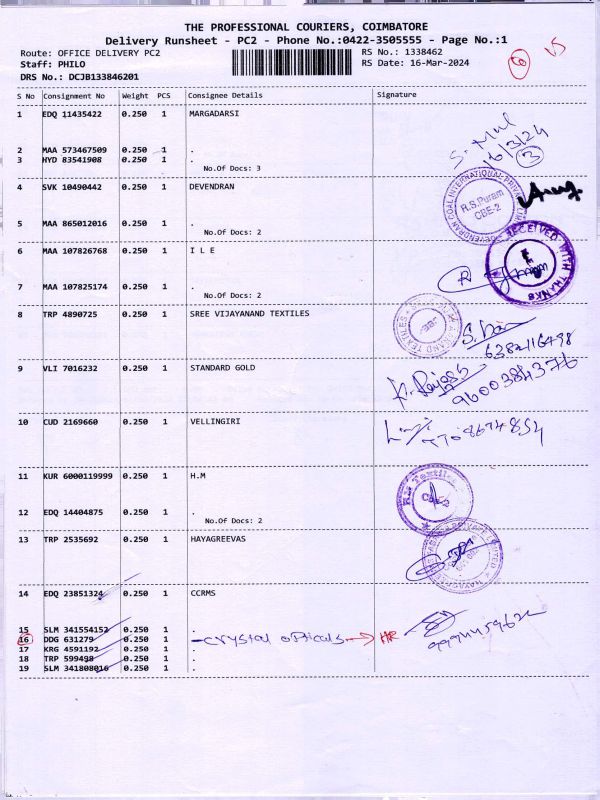 THE PROFESSIONAL COURIERS, COIMBATORE
Delivery Runsheet - PC2 - Phone No.:0422-3505555 - Page No.:1
Route: OFFICE DELIVERY PC2 RS No.: 1338462
Staff: PHILO RS Date: 16-Mar-2024
DRS No.: DCJB133846201
S No Consignment No Weight PCS Consignee Details Signature
1 EDQ 11435422 0.250 1 MARGADARSI
16/3/24
2 MAA 573467509 0.250 1 .
3 HYD 83541908 0.250 1 . 3
No.Of Docs: 3
4 SVK 10490442 0.250 1 DEVENDRAN
DEVENDRAN COAL INTERNATIONAL PRIVATE LIMITED
R.S.Puram
CBE-2
5 MAA 865012016 0.250 1 .
No.Of Docs: 2
RECEIVED WITH THANKS
6 MAA 107826768 0.250 1 I L E
7 MAA 107825174 0.250 1 .
No.Of Docs: 2
8 TRP 4890725 0.250 1 SREE VIJAYANAND TEXTILES
6382116498
9 VLI 7016232 0.250 1 STANDARD GOLD
9600384376
10 CUD 2169660 0.250 1 VELLINGIRI
11 KUR 6000119999 0.250 1 H.M
12 EDQ 14404875 0.250 1 .
No.Of Docs: 2
13 TRP 2535692 0.250 1 HAYAGREEVAS
14 EDQ 23851324 0.250 1 CCRMS
15 SLM 341554152 0.250 1 .
16 DDG 631279 0.250 1 - crystal opticals → HR
17 KRG 4591192 0.250 1 .
18 TRP 599498 0.250 1 .
19 SLM 341808016 0.250 1 .